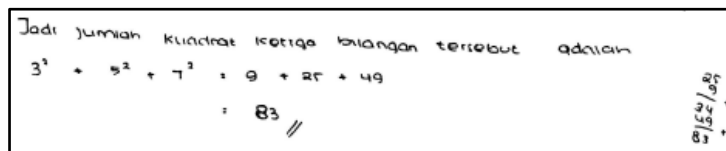 Jadi jumlah kuadrat ketiga bilangan tersebut adalah
3² + 5² + 7² = 9 + 25 + 49
= 83 //
25
9
34
49
83 +